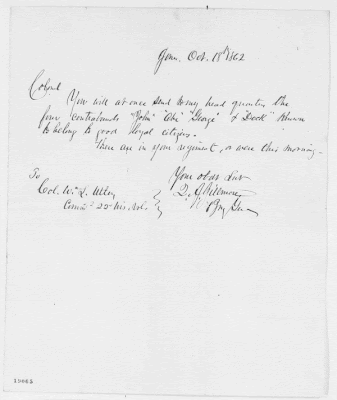 Oct. 18th 1862
Colonel
You will at once send to my head quarters the
four contrabands "John" "Abe" "George" & "Dock" known
to belong to good loyal citizens.
They are in your regiment, or were this morning.
Your obdt Svt
To
Col. Wm L. Utley
Q. A. Gillmore
Comd 22 Wis. Vol.
Brg Gen
19665